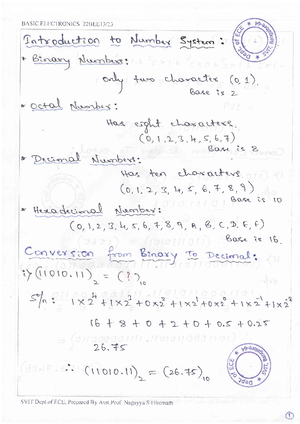 BASIC ELECTRONICS 22BEE13/23
Introduction to Number System:
* Binary Numbers:
only two character (0,1).
Base is 2
* Octal Number:
Has eight characters.
(0,1,2,3,4,5,6,7)
Base is 8
* Decimal Numbers:
Has ten characters
(0,1,2,3,4,5,6,7,8,9)
Base is 10
* Hexadecimal Number:
(0,1,2,3,4,5,6,7,8,9,A,B,C,D,E,F)
Base is 16.
Conversion from Binary To Decimal:
(11010.11)₂ = (?)₁₀
Sol/n: 1×2⁴+1×2³+0×2²+1×2¹+0×2⁰+1×2⁻¹+1×2⁻²
16 + 8 + 0 + 2 + 0 + 0.5 + 0.25
26.75
∴ (11010.11)₂ = (26.75)₁₀
SVIT Dept of ECE, Prepared By Asst.Prof. Nagayya S Hiremath
1